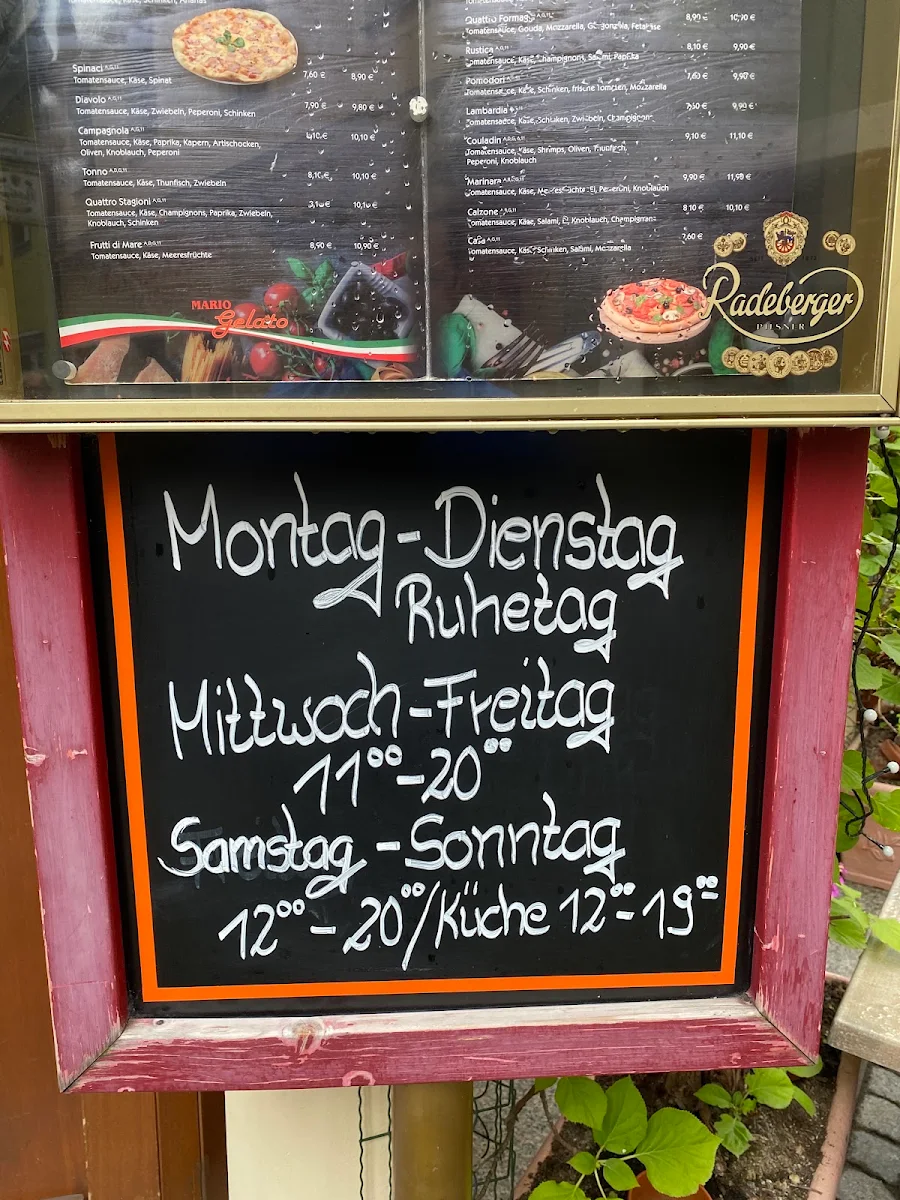 Tomatensauce, Käse, Schinken, Ananas
Spinaci A,G,11
Tomatensauce, Käse, Spinat
7,60 € 8,90 €
Diavolo A,G,11
Tomatensauce, Käse, Zwiebeln, Peperoni, Schinken
7,90 € 9,80 €
Campagnola A,G,11
Tomatensauce, Käse, Paprika, Kapern, Artischocken,
Oliven, Knoblauch, Peperoni
10,10 €
Tonno A,D,G,11
Tomatensauce, Käse, Thunfisch, Zwiebeln
8,10 € 10,10 €
Quattro Stagioni A,G,11
Tomatensauce, Käse, Champignons, Paprika, Zwiebeln,
Knoblauch, Schinken
10,10 €
Frutti di Mare
Tomatensauce, Käse, Meeresfrüchte
8,90 € 10,90 €
MARIO
Gelato
Quattro Formaggi
Tomatensauce, Gouda, Mozzarella, Gorgonzola, Fetakäse
8,90 € 10,90 €
Rustica A,G,11
Tomatensauce, Käse, Champignons, Salami, Paprika
8,10 € 9,90 €
Pomodori
Tomatensauce, Käse, Schinken, frische Tomaten, Mozzarella
9,90 €
Lambardia
Tomatensauce, Käse, Schinken, Zwiebeln, Champignons
9,90 €
Couladin
Tomatensauce, Käse, Shrimps, Oliven, Thunfisch,
Peperoni, Knoblauch
9,10 € 11,10 €
Marinara
Tomatensauce, Käse, Meeresfrüchte, Ei, Peperoni, Knoblauch
9,90 € 11,90 €
Calzone A,G,11
Tomatensauce, Käse, Salami, Ei, Knoblauch, Champignons
8,10 € 10,10 €
Casa A,G,11
Tomatensauce, Käse, Schinken, Salami, Mozzarella
7,60 €
Radeberger
PILSNER
Montag - Dienstag
Ruhetag
Mittwoch - Freitag
11⁰⁰ - 20⁰⁰
Samstag - Sonntag
12⁰⁰ - 20⁰⁰ / Küche 12⁰⁰ - 19⁰⁰